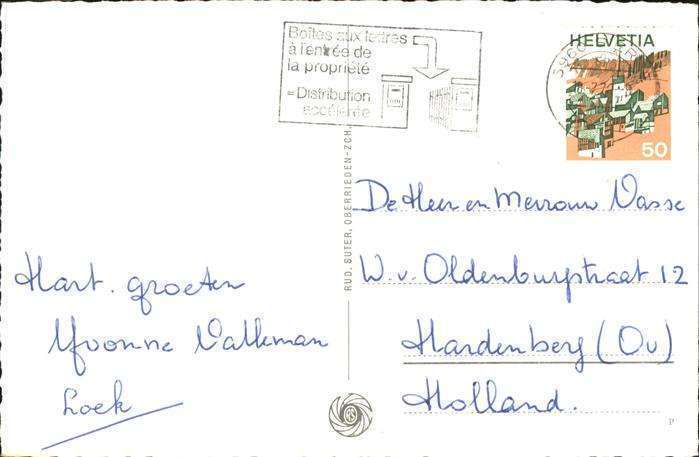 Boîtes aux lettres
à l'entrée de
la propriété
= Distribution
accélérée
HELVETIA
50
RUD. SUTER, OBERRIEDEN-ZCH.
De Heer en Mevrouw Vasse
W. v. Oldenburgstraat 12
Hardenberg (Ov)
Holland.
Hart. groeten
Yvonne Valkman
Loek
P